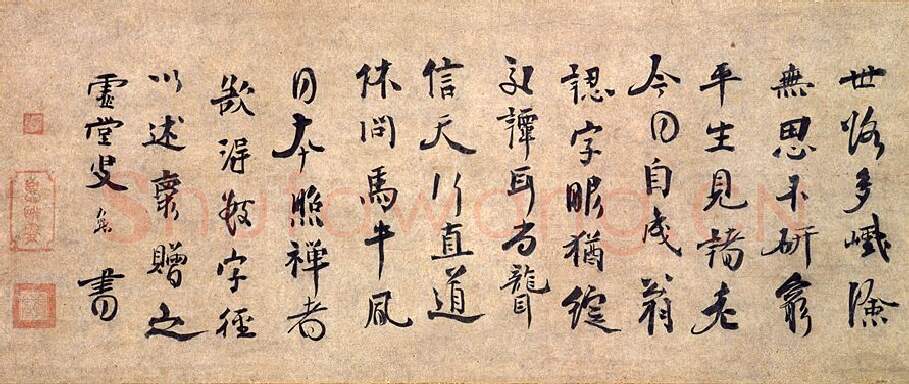 世路多巇險
無思不研窮
平生見諸老
今日自成翁
認字眼猶綻
交譚耳尚聾
信天行直道
休問馬牛風
日本照禪者
欲得數字徑
以述懷贈之
虛堂叟 書
Shufawang.CN